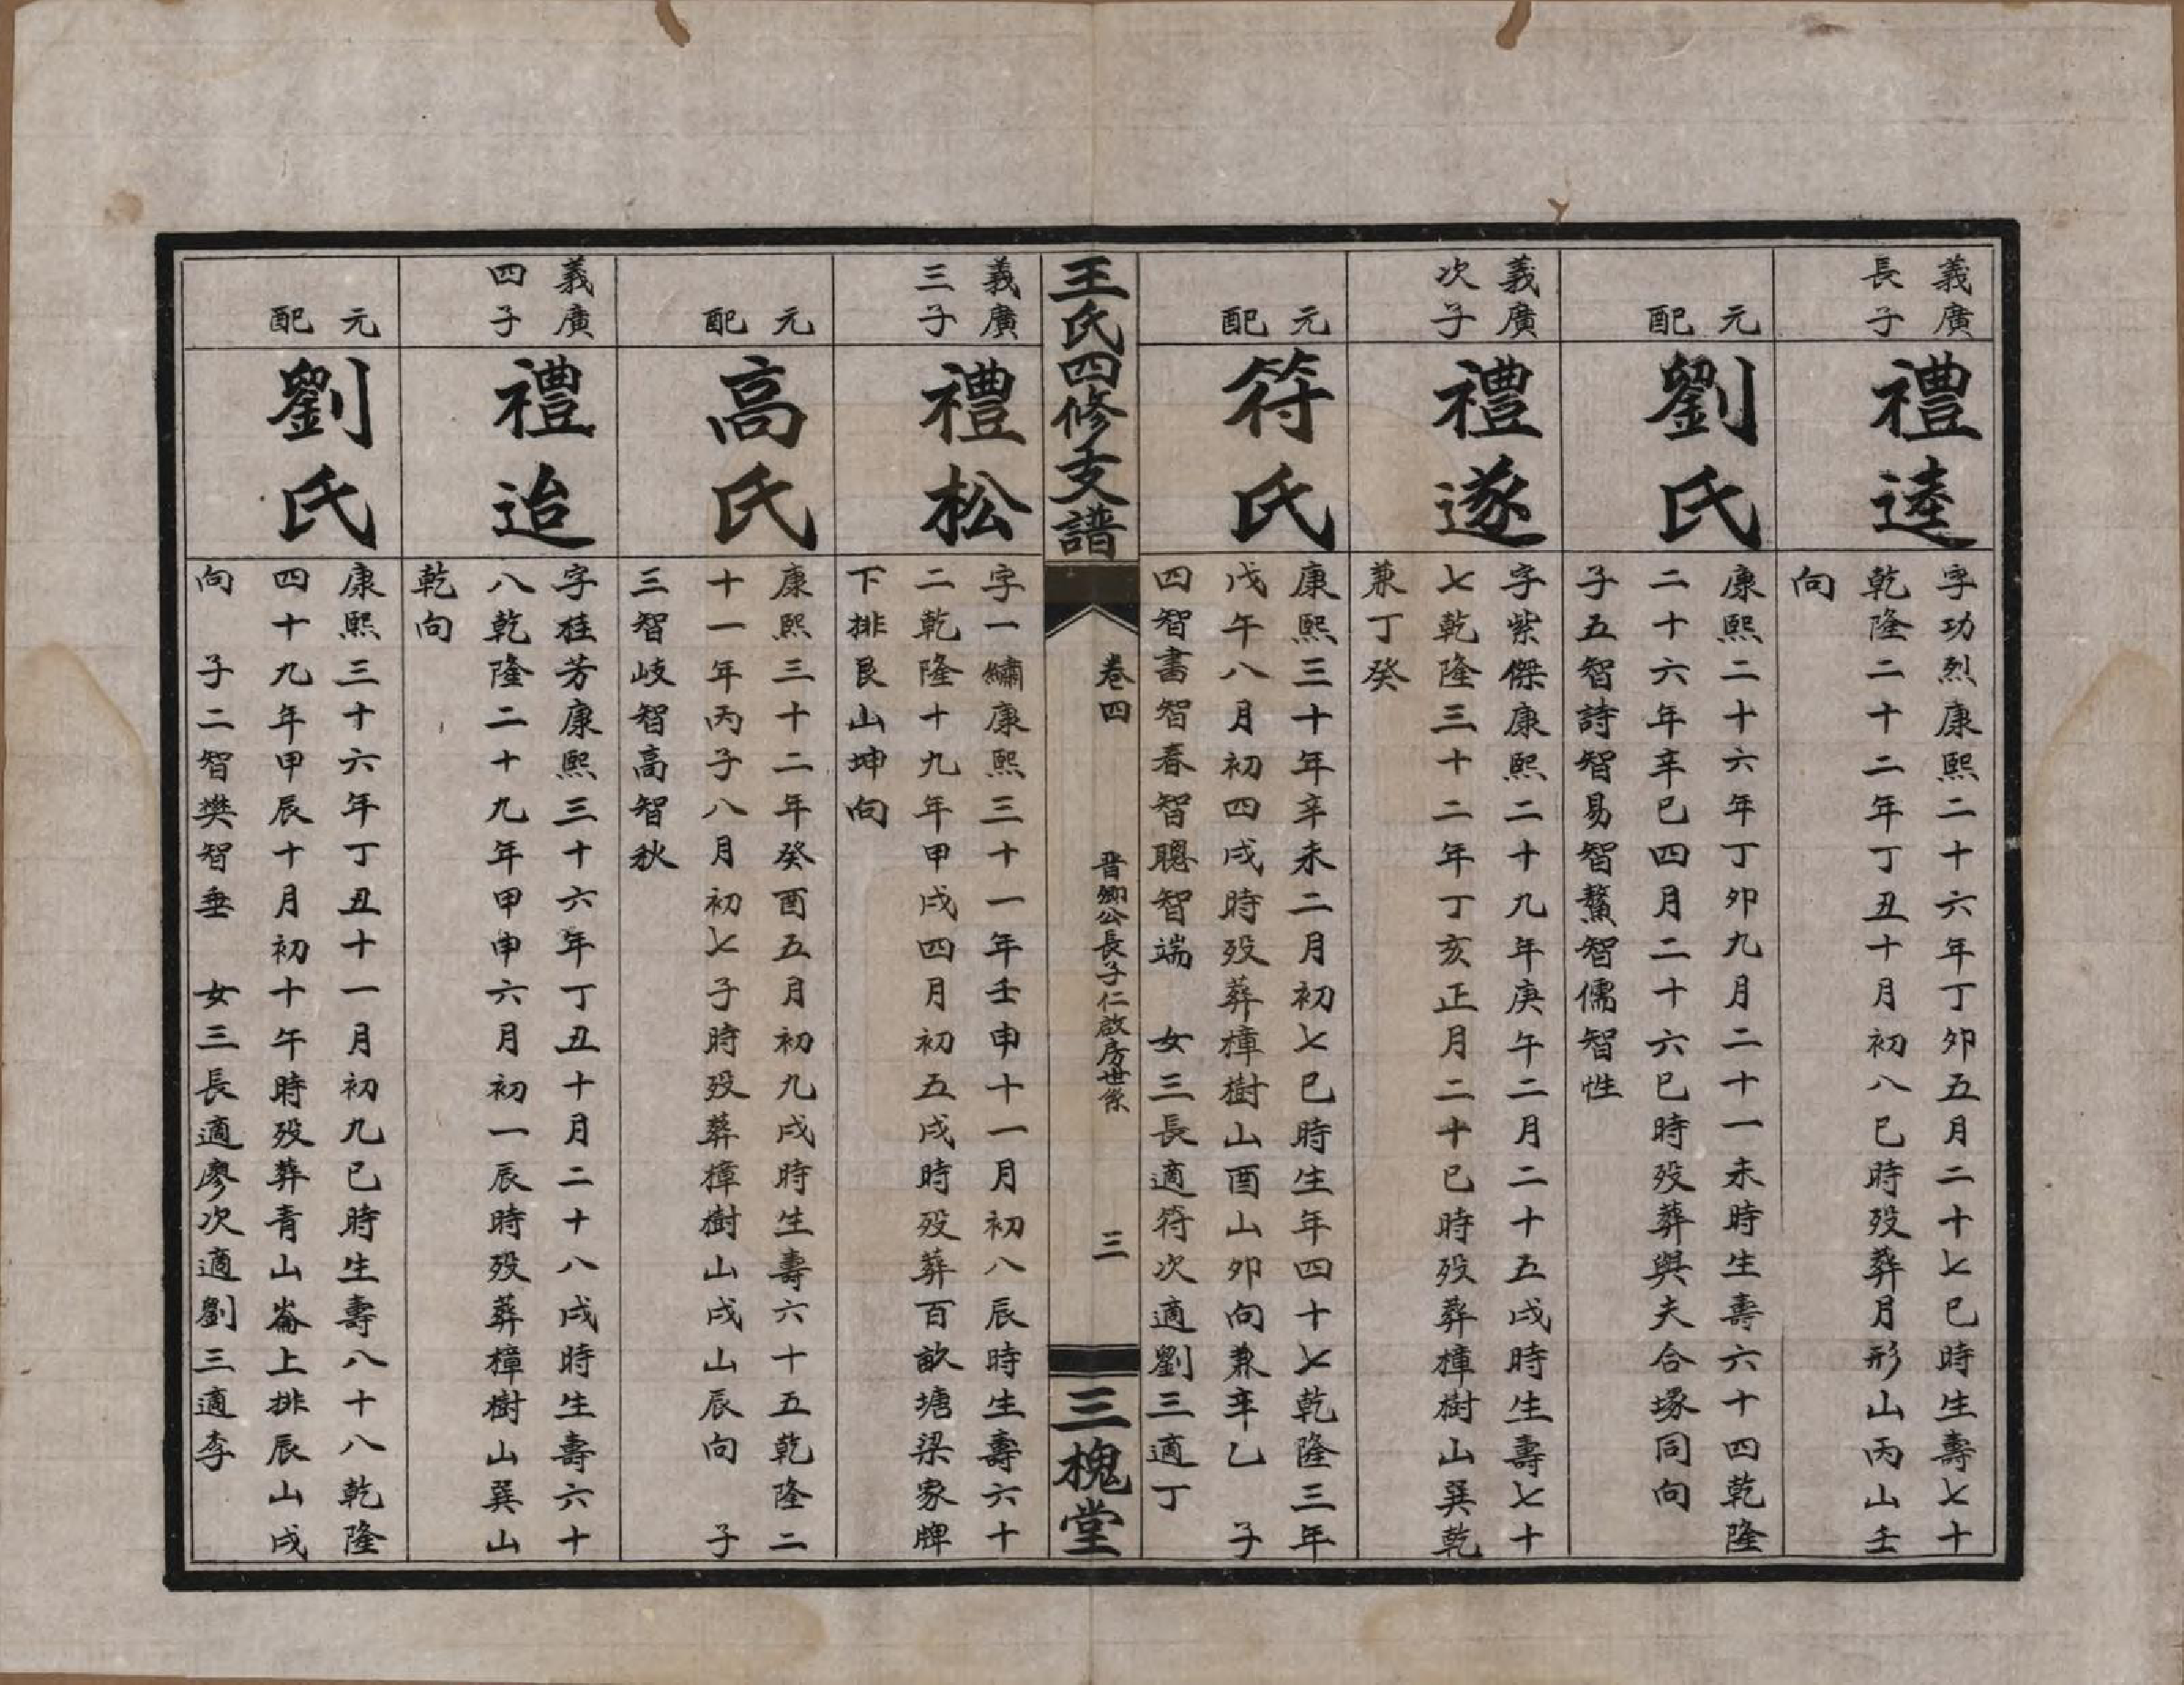 義廣
長子
禮逵
字功烈康熙二十六年丁卯五月二十七巳時生壽七十
乾隆二十二年丁丑十月初八巳時歿葬月形山丙山壬
向
元
配
劉氏
康熙二十六年丁卯九月二十一未時生壽六十四乾隆
二十六年辛巳四月二十六巳時歿葬與夫合塚同向
子五智詩智易智鰲智儒智性
義廣
次子
禮遂
字紫傑康熙二十九年庚午二月二十五戌時生壽七十
七乾隆三十二年丁亥正月二十巳時歿葬樟樹山巽乾
兼丁癸
元
配
符氏
康熙三十年辛未二月初七巳時生年四十七乾隆三年
戊午八月初四戌時歿葬樟樹山酉山卯向兼辛乙 子
四智書智春智聰智端 女三長適符次適劉三適丁
王氏四修支譜
卷四
晋卿公長子仁啟房世系
三
三槐堂
義廣
三子
禮松
字一繡康熙三十一年壬申十一月初八辰時生壽六十
二乾隆十九年甲戌四月初五戌時歿葬百畝塘梁家牌
下排艮山坤向
元
配
高氏
康熙三十二年癸酉五月初九戌時生壽六十五乾隆二
十一年丙子八月初七子時歿葬樟樹山戌山辰向 子
三智岐智高智秋
義廣
四子
禮迨
字桂芳康熙三十六年丁丑十月二十八戌時生壽六十
八乾隆二十九年甲申六月初一辰時歿葬樟樹山巽山
乾向
元
配
劉氏
康熙三十六年丁丑十一月初九巳時生壽八十八乾隆
四十九年甲辰十月初十午時歿葬青山崙上排辰山戌
向 子二智樊智垂 女三長適廖次適劉三適李